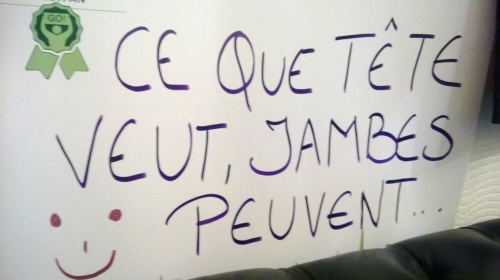 GO!
CE QUE TÊTE
VEUT, JAMBES
PEUVENT...